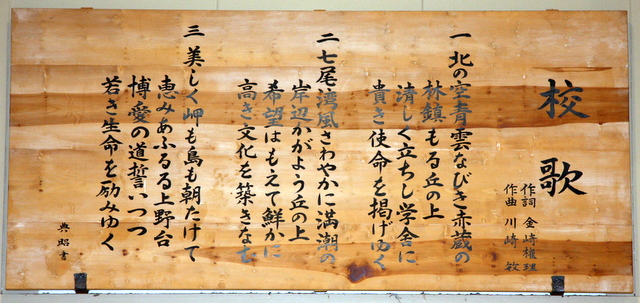 校歌
作詞 金崎権理
作曲 川崎敏
一 北の空青雲なびき赤蔵の
林鎮もる丘の上
清しく立ちし学舎に
貴き使命を掲げゆく
二 七尾湾風さわやかに満潮の
岸辺かがよう丘の上
希望はもえて鮮かに
高き文化を築きなむ
三 美しく岬も島も朝たけて
恵みあふるる上野台
博愛の道誓いつつ
若き生命を励みゆく
典昭書